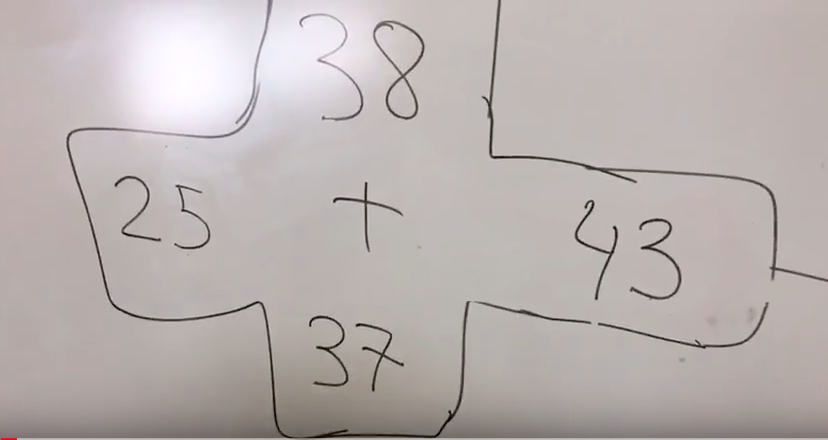 38
25 + 43
37